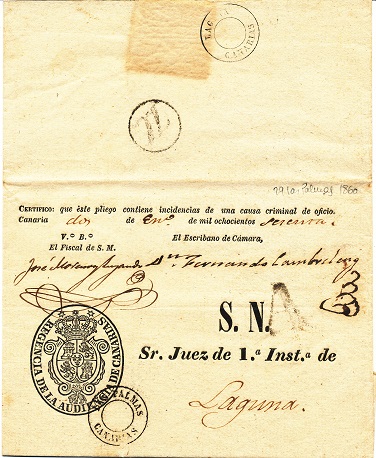 LAGUNA
CANARIAS
A
29 10 Palmas 1860
CERTIFICO: que éste pliego contiene incidencias de una causa criminal de oficio.
Canaria dos de En.º de mil ochocientos sesenta.
V.º B.º
El Fiscal de S. M.
El Escribano de Cámara,
José Moreno D.n Fernando Cambreleng
S. N.
A
Sr. Juez de 1.ª Inst.ª de
Laguna.
REGENCIA DE LA AUDIENCIA DE CANARIAS
PALMAS
CANARIAS